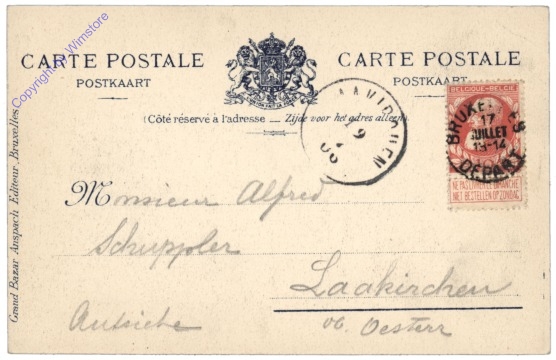 CARTE POSTALE
POSTKAART
CARTE POSTALE
POSTKAART
(Côté réservé à l'adresse — Zijde voor het adres alleen)
BELGIQUE-BELGIË
BRUXELLES
17
JUILLET
13-14
DÉPART
NE PAS LIVRER LE DIMANCHE
NIET BESTELLEN OP ZONDAG
19
Monsieur Alfred
Schuppler
Laakirchen
ob. Oesterr
Grand Bazar Anspach Editeur, Bruxelles
Copyright by Winstore